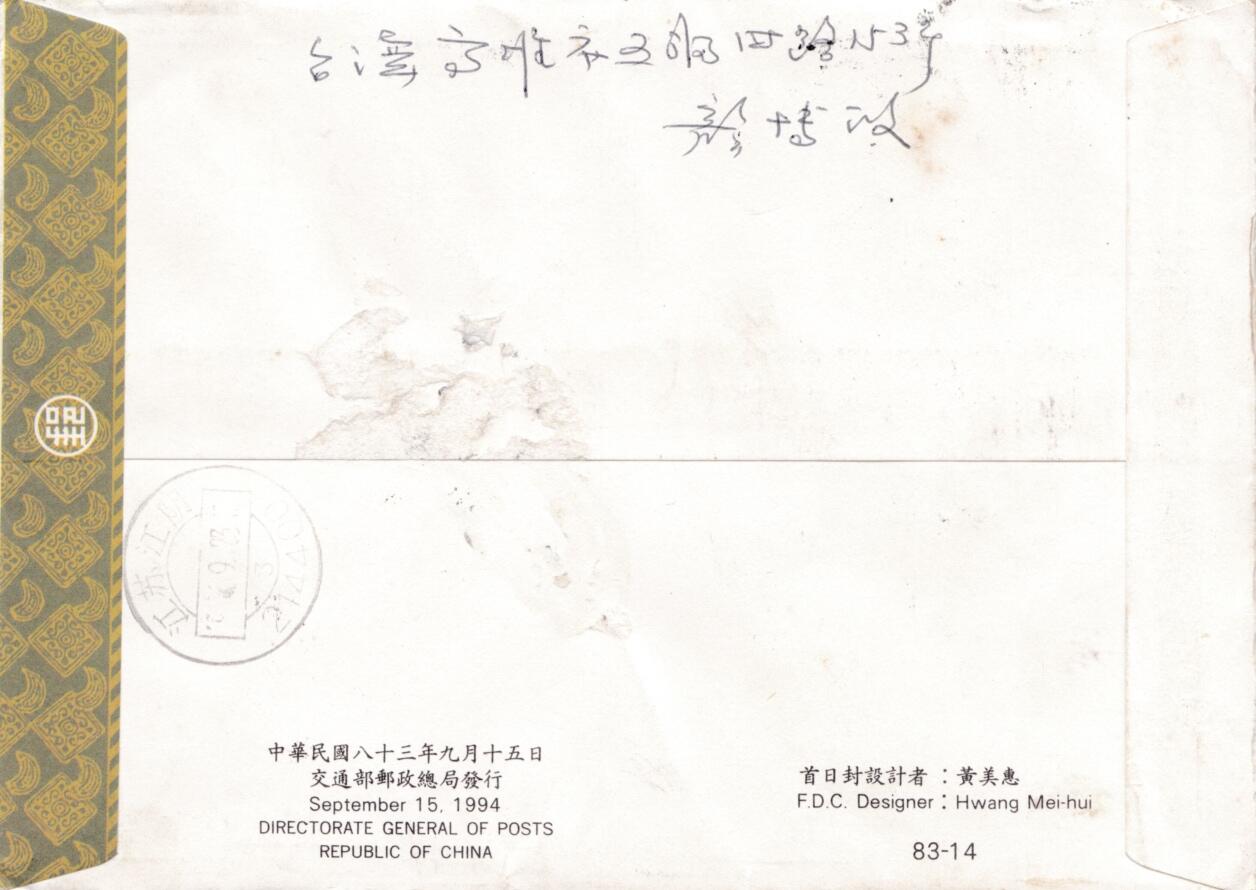 台灣高雄市五福四路153号
博政
江苏江阴
214400
中華民國八十三年九月十五日
交通部郵政總局發行
September 15, 1994
DIRECTORATE GENERAL OF POSTS
REPUBLIC OF CHINA
首日封設計者：黃美惠
F.D.C. Designer：Hwang Mei-hui
83-14